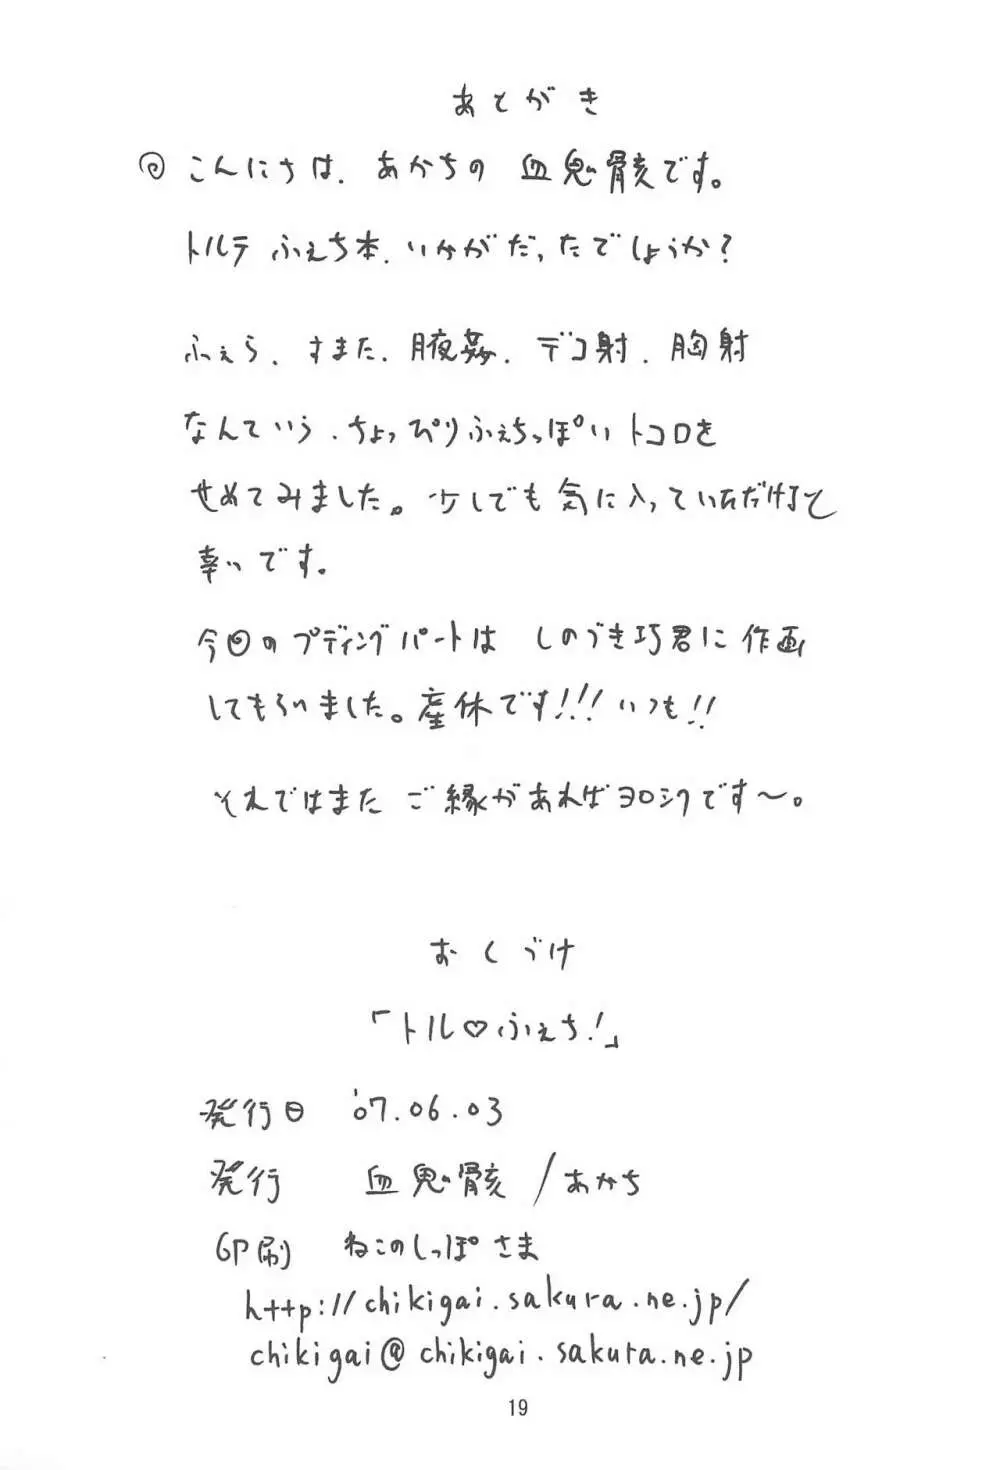 あとがき
こんにちは、あかちの 血鬼骸です。
トルテ ふぇち本、いかがだったでしょうか?
ふぇら、すまた、腋姦、デコ射、胸射
なんていう、ちょっぴりふぇちっぽいトコロを
せめてみました。少しでも気に入っていただけると
幸いです。
今回のプディングパートは しのづき巧君に作画
してもらいました。産休です!!! いつも!!
それではまた ご縁があればヨロシクです〜。
おくづけ
「トル♡ふぇち!」
発行日 '07.06.03
発行 血鬼骸/あかち
印刷 ねこのしっぽさま
http://chikigai.sakura.ne.jp/
chikigai@chikigai.sakura.ne.jp
19